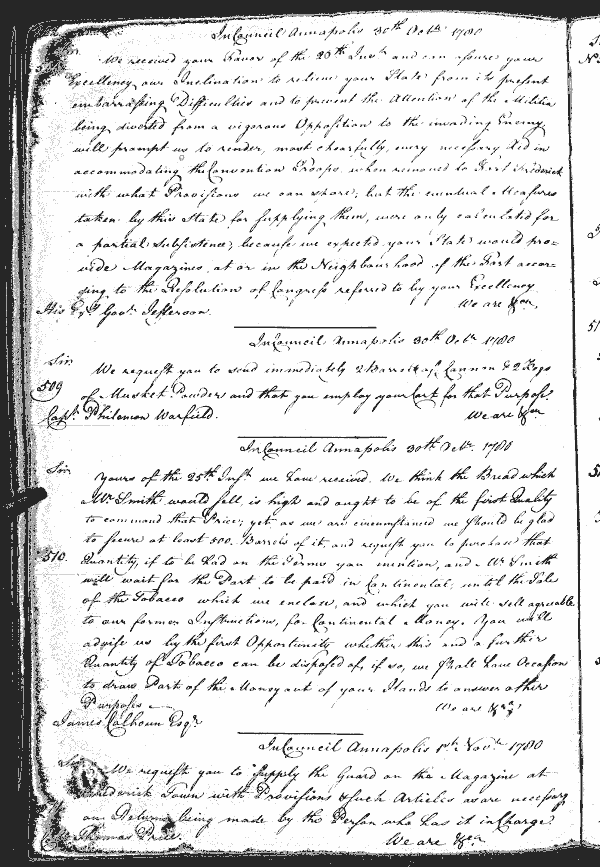 In Council Annapolis 30th Octr 1780
We received your Favor of the 26th Inst and can assure your
Excellency our Inclination to relieve your State from its present
embarrassing Difficulties and to prevent the Attention of the Militia
being diverted from a vigorous Opposition to the invading Enemy
will prompt us to render, most chearfully, every necessary Aid in
accommodating the Convention Troops, when removed to Fort Frederick
with what Provisions we can spare; but the eventual Measures
taken by this State for supplying them, were only calculated for
a partial subsistence, because we expected your State would pro=
vide Magazines, at or in the Neighbourhood of the Fort accor=
ding to the Resolution of Congress referred to by your Excellency.
We are &ca
His Exy Govr Jefferson
In Council Annapolis 30th Octr 1780
Sir
We request you to send immediately 2 Barrels of Cannon & 2 Kegs
509
of Musket Powder and that you employ your Cart for that Purpose
We are &ca
Capt. Philemon Warfield.
In Council Annapolis 30th Octr 1780
Sir
Yours of the 25th Inst. we have received. We think the Bread which
Mr Smith would sell, is high and ought to be of the first Quality
to command that Price; yet, as we are circumstanced we should be glad
to secure at least 500 Barrels of it, and request you to purchase that
510.
Quantity, if to be had on the Terms you mention, and Mr Smith
will wait for the Part to be paid in Continental, until the Sale
of the Tobacco which we enclose, and which you will sell agreeable
to our former Instructions, for Continental Money. You will
advise us by the first Opportunity whether this and a further
Quantity of Tobacco can be disposed of, if so, we shall have Occasion
to draw Part of the Money out of your Hands to answer other
Purposes
We are &ca
James Calhoun Esqr
In Council Annapolis 1st Novr 1780
Sir
We request you to supply the Guard on the Magazine at
Frederick Town with Provisions & such Articles as are necessary
on Returns being made by the Person who has it in Charge.
We are &ca
Thomas Price